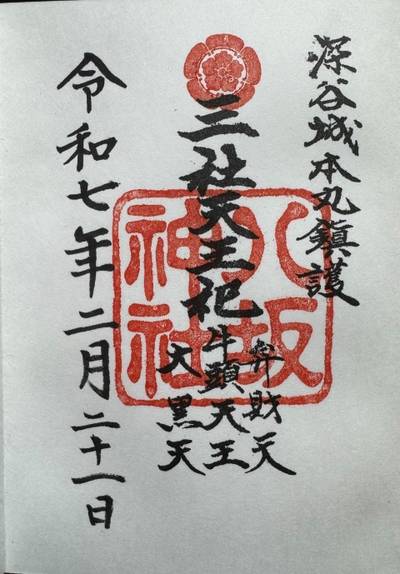 深谷城本丸鎮護
三社天王祀
弁財天
牛頭天王
大黒天
八坂
神社
令和七年二月二十一日